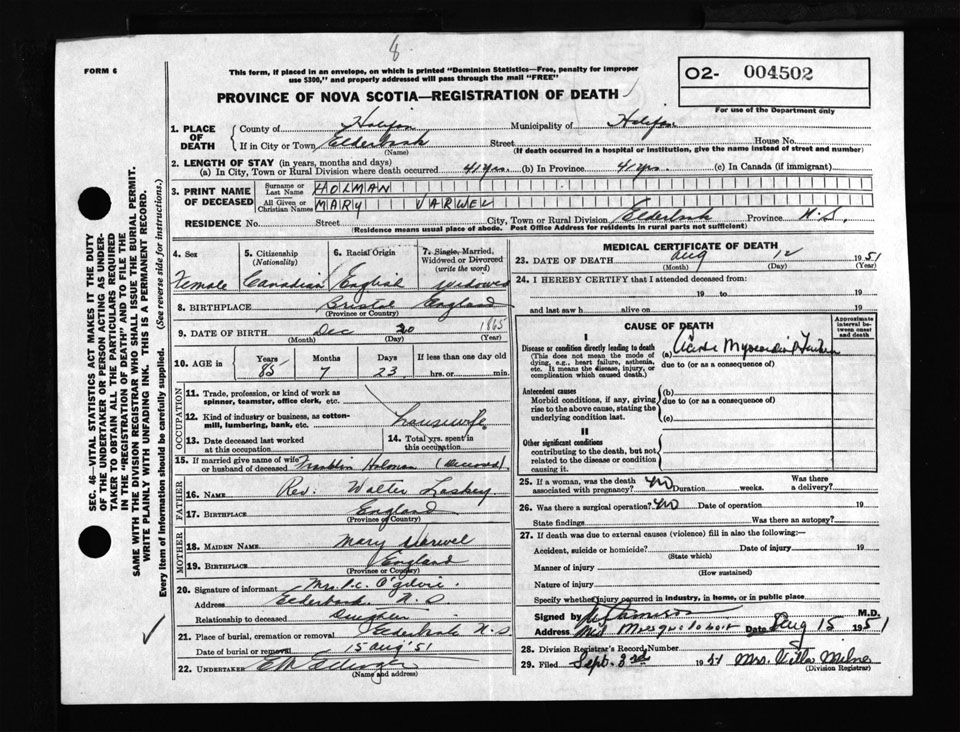 8
FORM 6
This form, if placed in an envelope, on which is printed "Dominion Statistics—Free, penalty for improper
use $300," and properly addressed will pass through the mail "FREE"
O2- 004502
PROVINCE OF NOVA SCOTIA—REGISTRATION OF DEATH
For use of the Department only
1. PLACE OF DEATH
County of Halifax Municipality of Halifax
If in City or Town Elderbank Street House No.
(Name) (If death occurred in a hospital or institution, give the name instead of street and number)
2. LENGTH OF STAY (in years, months and days)
(a) In City, Town or Rural Division where death occurred 41 yrs. (b) In Province 41 yrs. (c) In Canada (if immigrant)
3. PRINT NAME OF DECEASED
Surname or Last Name HOLMAN
All Given or Christian Names MARY VARWEL
RESIDENCE No. Street City, Town or Rural Division Elderbank Province N.S.
(Residence means usual place of abode. Post Office Address for residents in rural parts not sufficient)
4. Sex Female
5. Citizenship (Nationality) Canadian
6. Racial Origin English
7. Single, Married, Widowed or Divorced (write the word) Widowed
8. BIRTHPLACE Bristol England
(Province or Country)
9. DATE OF BIRTH Dec 20 1865
(Month) (Day) (Year)
10. AGE in Years 85 Months 7 Days 23 If less than one day old hrs. or min.
OCCUPATION
11. Trade, profession, or kind of work as spinner, teamster, office clerk, etc.
12. Kind of industry or business, as cotton-mill, lumbering, bank, etc. Housewife
13. Date deceased last worked at this occupation
14. Total yrs. spent in this occupation
15. If married give name of wife or husband of deceased Franklin Holman (deceased)
FATHER
16. NAME Rev. Walter Laskey
17. BIRTHPLACE England
(Province or Country)
MOTHER
18. MAIDEN NAME Mary Varwel
19. BIRTHPLACE England
(Province or Country)
20. Signature of informant Mrs. P.C. Ogilvie.
Address Elderbank. N.S
Relationship to deceased Daughter
21. Place of burial, cremation or removal Elderbank N.S
Date of burial or removal 15 aug '51
22. UNDERTAKER
(Name and address)
MEDICAL CERTIFICATE OF DEATH
23. DATE OF DEATH aug 12 1951
(Month) (Day) (Year)
24. I HEREBY CERTIFY that I attended deceased from:
19 to 19
and last saw h alive on 19
CAUSE OF DEATH
Approximate interval between onset and death
I
Disease or condition directly leading to death
(This does not mean the mode of dying, e.g., heart failure, asthenia, etc. It means the disease, injury, or complication which caused death.)
(a) Acute Myocardial Failure
due to (or as a consequence of)
Antecedent causes
Morbid conditions, if any, giving rise to the above cause, stating the underlying condition last.
(b)
due to (or as a consequence of)
(c)
II
Other significant conditions contributing to the death, but not related to the disease or condition causing it.
25. If a woman, was the death associated with pregnancy? No Duration weeks. Was there a delivery?
26. Was there a surgical operation? No Date of operation 19
State findings Was there an autopsy?
27. If death was due to external causes (violence) fill in also the following:—
Accident, suicide or homicide? Date of injury 19
(State which)
Manner of injury
(How sustained)
Nature of injury
Specify whether injury occurred in industry, in home, or in public place
Signed by M.D.
Address Mid Musquodoboit Date Aug 15 1951
28. Division Registrar's Record Number
29. Filed Sept. 3rd 1951 Mrs. Milner
(Division Registrar)
SEC. 46—VITAL STATISTICS ACT MAKES IT THE DUTY
OF THE UNDERTAKER OR PERSON ACTING AS UNDER-
TAKER TO OBTAIN ALL THE PARTICULARS REQUIRED
IN THE "REGISTRATION OF DEATH" AND TO FILE THE
SAME WITH THE DIVISION REGISTRAR WHO SHALL ISSUE THE BURIAL PERMIT.
WRITE PLAINLY WITH UNFADING INK. THIS IS A PERMANENT RECORD.
Every item of information should be carefully supplied. (See reverse side for instructions.)